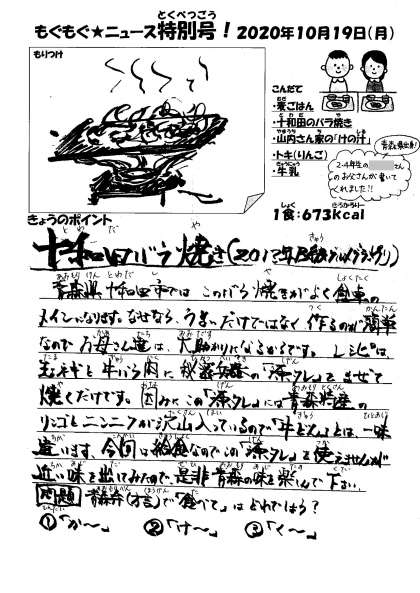 とくべつごう
もぐもぐ★ニュース特別号！ 2020年10月19日(月)
もりつけ
こんだて
・麦ごはん
・十和田のバラ焼き
・山内さん家の「けの汁」
・トキ(りんご)
・牛乳
青森県出身!
2-4年生の さん
のお父さんが書いて
くれました!!
1食:673kcal
きょうのポイント
十和田バラ焼き
青森県十和田市では このバラ焼きがよく食卓の
メインになります。なぜなら、うまいだけではなく 作るのが簡単
なので お母さん達は、大助かりになるからです。 レシピは、
玉ネギと牛バラ肉に 秘密兵器の「源タレ」をまぜて
焼くだけです。因みに この「源タレ」には 青森特産の
リンゴとニンニクが沢山入っているので「牛どん」とは、一味
違います。今回は給食なのでこの「源タレ」を使えませんが
近い味を出してみたので、是非青森の味を楽しんで下さい。
問題 青森弁(方言)で、「食べて」は どれでしょう？
①「か〜」 ②「け〜」 ③「く〜」